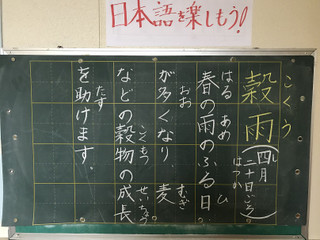 日本語を楽しもう!
こくう
穀雨(四月二十日ごろ)
はつか
はる あめ ひ
春の雨のふる日
おお むぎ
が多くなり、麦
こくもつ せいちょう
などの穀物の成長
たす
を助けます。